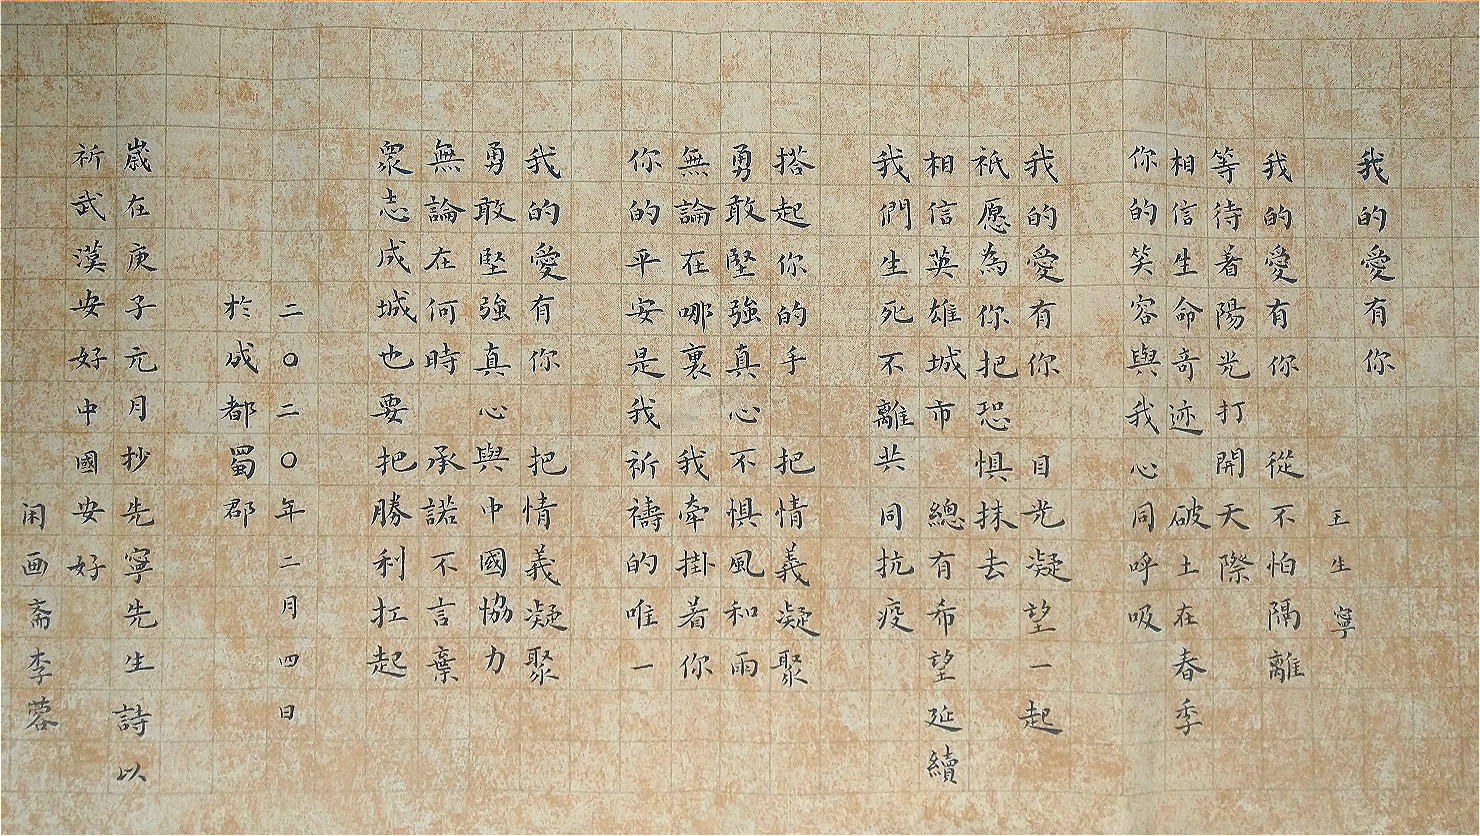 我的愛有你
王生寧
我的愛有你 從不怕隔離
等待著陽光打開天際
相信生命奇迹 破土在春季
你的笑容與我心同呼吸
我的愛有你 目光凝望一起
祇愿為你把恐懼抹去
相信英雄城市 總有希望延續
我們生死不離共同抗疫
搭起你的手 把情義凝聚
勇敢堅強真心不懼風和雨
無論在哪裏 我牽掛著你
你的平安是我祈禱的唯一
我的愛有你 把情義凝聚
勇敢堅強真心與中國協力
無論在何時 承諾不言棄
衆志成城也要把勝利扛起
二〇二〇年二月四日
於成都蜀郡
歲在庚子元月抄先寧先生詩以
祈武漢安好中國安好
闲画斋李蓉